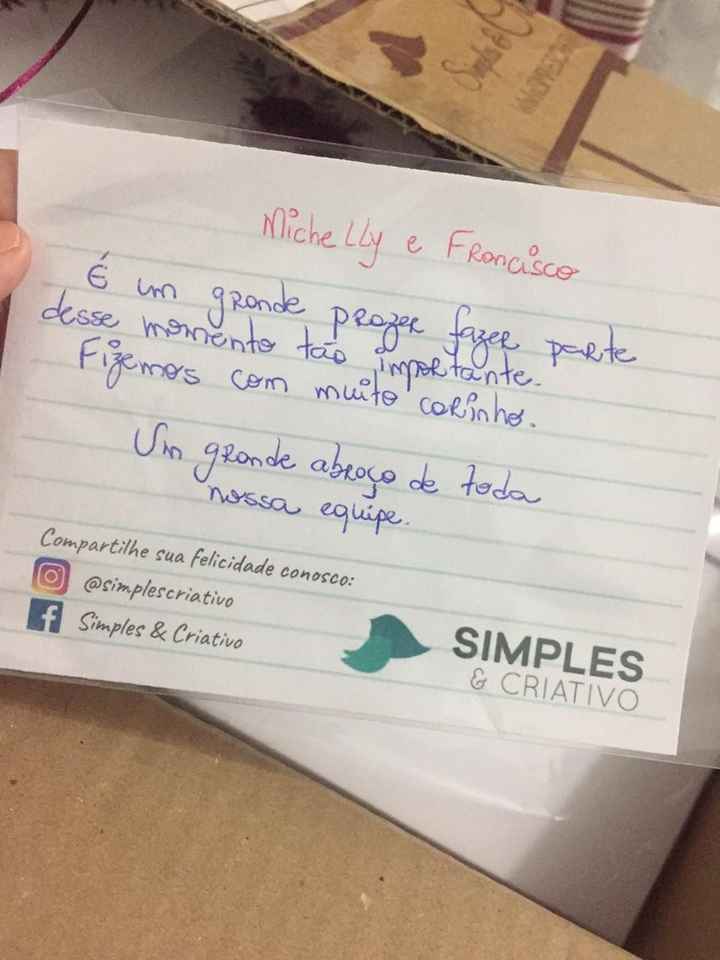 Simples & C
Michelly e Francisco
É um grande prazer fazer parte
desse momento tão importante.
Fizemos com muito carinho.
Um grande abraço de toda
nossa equipe.
Compartilhe sua felicidade conosco:
@simplescriativo
Simples & Criativo
SIMPLES
& CRIATIVO